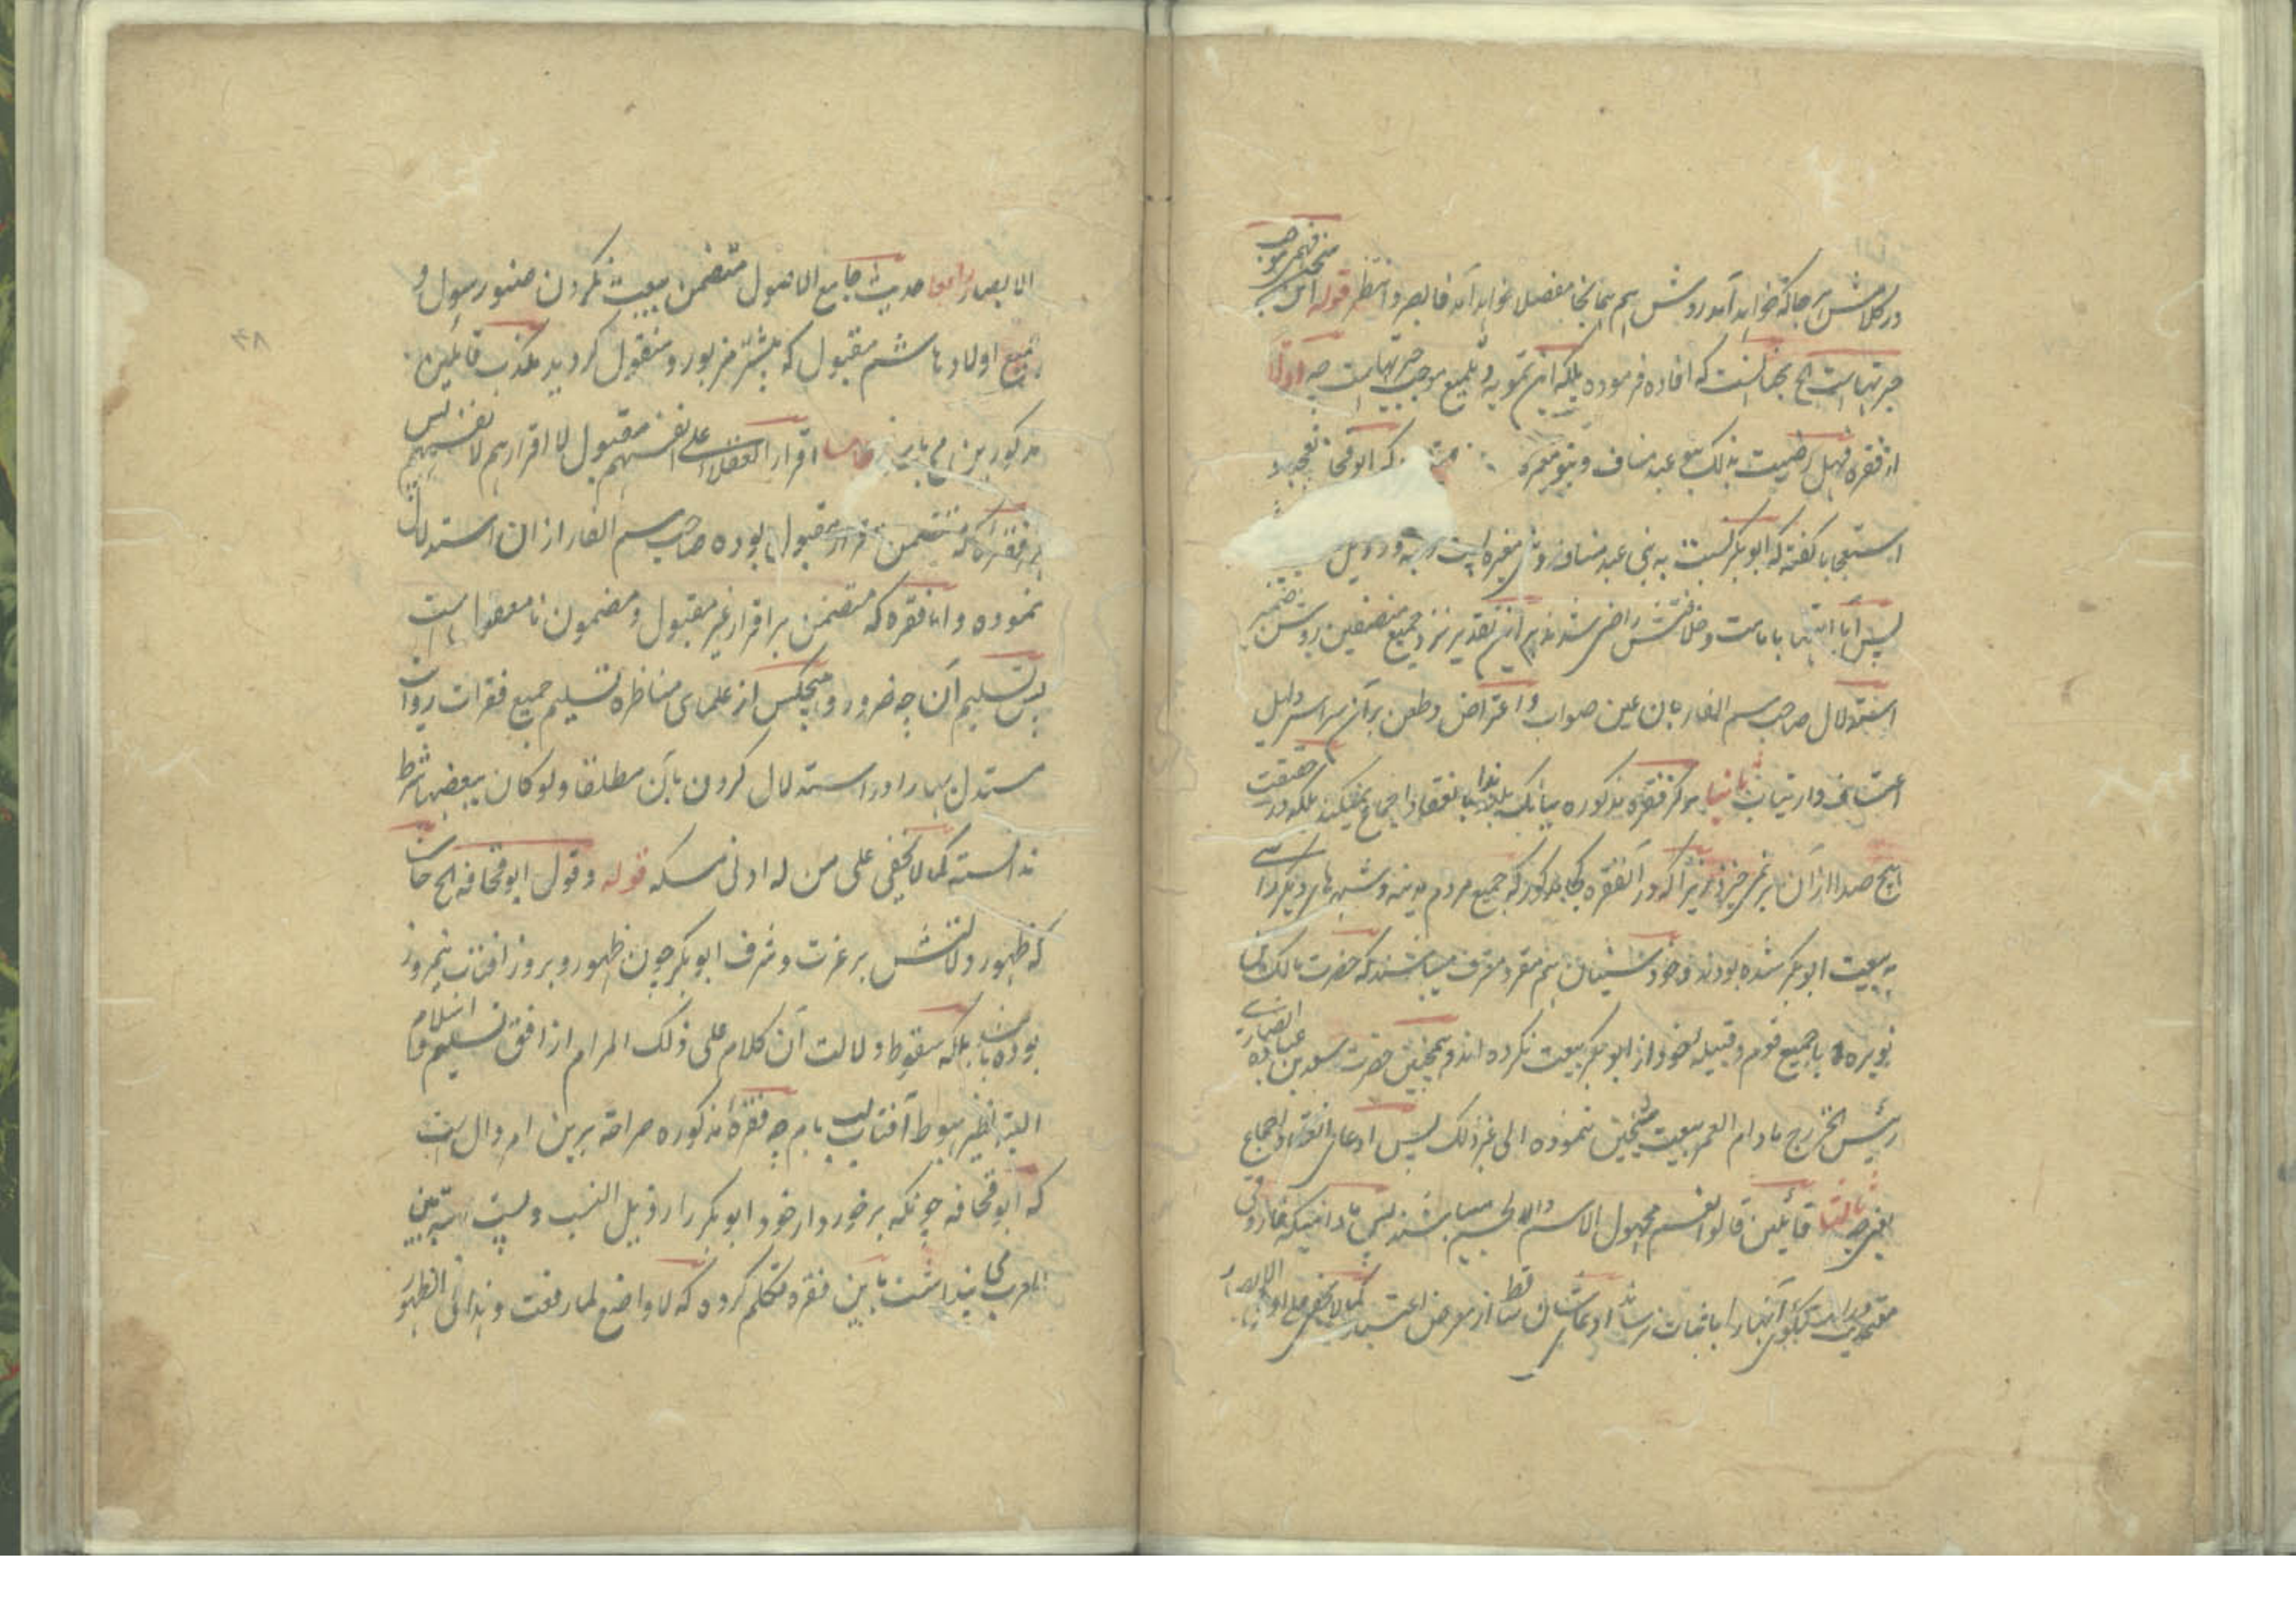 در کلامش هر جا که خواهد آمد ردش هم همانجا مفصلا خواهد آمد فانصر وانتظر قوله این سخن فهم موجب
حیرتهاست الخ بجهانست که افاده فرموده بلکه این تمویه و تلمیع موجب حیرتهاست چه اولا
از فقره فهل رضیت بذلک بنو عبد مناف و بنو مغیره که ابو قحافه
استعجابا گفته که ابوبکر نسبت به بنی عبد مناف و بنی مغیره پست رتبه و رذیل
پس آیا اینها بامامت و خلافتش راضی شدند پس برین تقدیر نزد جمیع منصفین روشن ضمیر
استدلال صاحب سم الفار بان عین صواب و اعتراض و طعن بر آن سراسر دلیل
اعتساف و ارتیاب ثانیا هرکز فقره مذکوره ببانک بلند ندا بانعقاد اجماع نمیکند بلکه در حقیقت
هیچ صدا از آن بر نمی‌خیزد زیرا که در آنفقره کجا مذکور که جمیع مردم مدینه و شهرهای دیگر راضی
به بیعت ابوبکر شده بودند و خود سنیان هم مقر و معترف میباشند که حضرت مالک بن
نویره با جمیع قوم و قبیله خود از ابوبکر بیعت نکرده اند و همچنین حضرت سعد بن عباده انصاری
رئیس الخزرج مادام العمر بیعت شیخین ننموده الی غیر ذلک پس ادعای انعقاد اجماع
یعنی چه ثالثا قائلین قالوا نعم مجهول الاسم والجسم میباشند پس مادامیکه فاروقی
آنها را باثبات نرساند ادعایشان ساقط از معرض اعتبار کما لا یخفی علی اولی الابصار
الابصار رابعا حدیث جامع الاصول متضمن بیعت نکردن صنو رسول و
جمیع اولاد هاشم مقبول که پیشتر مزبور و منقول گردید مکذب قائلین
مذکورین می باید خامسا اقرار العقلاء علی انفسهم مقبول لا اقرارهم لانفسهم پس
هر فقره که متضمن اقرار مقبول بوده صاحب سم الفار از ان استدلال
نموده و اما فقره که متضمن بر اقرار غیر مقبول و مضمون نامعقول است
پس تسلیم آن چه ضرور و هیچکس از علمای مناظره تسلیم جمیع فقرات روایت
مستدل بها را در استدلال کردن بآن مطلقا ولو کان ببعضها شرط
ندانسته کما لا یخفی علی من له ادنی مسکه قوله و قول ابو قحافه الخ حاشا
که ظهور دلالتش بر عزت و شرف ابوبکر چون ظهور و بروز آفتاب نیمروز
بوده باشد بلکه سقوط دلالت آن کلام علی ذلک المرام از افق تسلیم اسلام
البته نظیر هبوط آفتاب لب بام چه فقره مذکوره صراحة برین امر دال است
که ابو قحافه چونکه برخوردار خود ابوبکر را رذیل النسب و پست رتبه بین
العرب می پنداشت باین فقره متکلم کرده که لا واضع لما رفعت و هذا فی الظهور